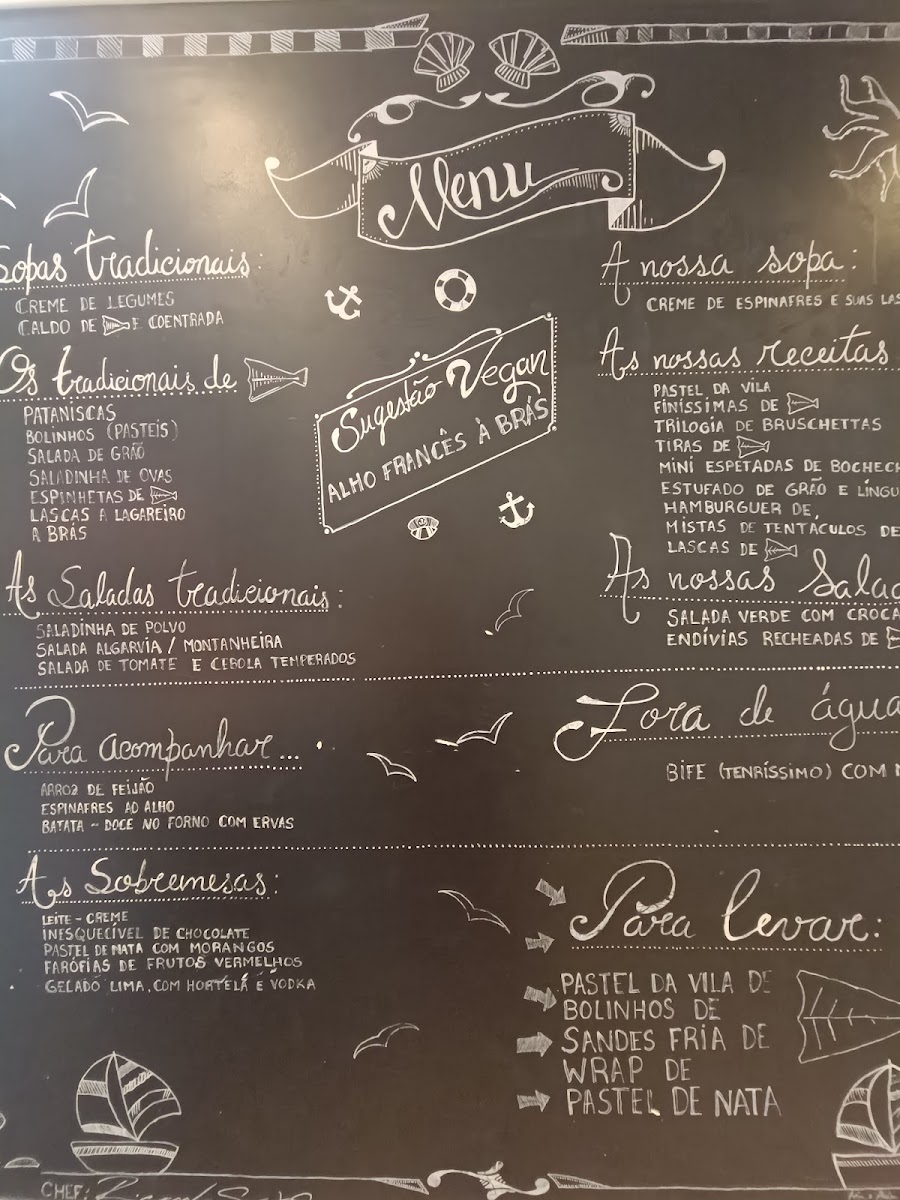 Menu
Sopas tradicionais:
CREME DE LEGUMES
CALDO DE E COENTRADA
Os tradicionais de
PATANISCAS
BOLINHOS (PASTEIS)
SALADA DE GRÃO
SALADINHA DE OVAS
ESPINHETAS DE
LASCAS A LAGAREIRO
A BRÁS
As Saladas tradicionais:
SALADINHA DE POLVO
SALADA ALGARVIA / MONTANHEIRA
SALADA DE TOMATE E CEBOLA TEMPERADOS
Para acompanhar...
ARROZ DE FEIJÃO
ESPINAFRES AO ALHO
BATATA - DOCE NO FORNO COM ERVAS
As Sobremesas:
LEITE - CREME
INESQUECÍVEL DE CHOCOLATE
PASTEL DE NATA COM MORANGOS
FARÓFIAS DE FRUTOS VERMELHOS
GELADO LIMA, COM HORTELÃ E VODKA
Sugestão Vegan
ALHO FRANCÊS À BRÁS
A nossa sopa:
CREME DE ESPINAFRES E SUAS LAS
As nossas receitas
PASTEL DA VILA
FINÍSSIMAS DE
TRILOGIA DE BRUSCHETTAS
TIRAS DE
MINI ESPETADAS DE BOCHECH
ESTUFADO DE GRÃO E LÍNGU
HAMBURGUER DE,
MISTAS DE TENTÁCULOS DE
LASCAS DE
As nossas Salad
SALADA VERDE COM CROCA
ENDÍVIAS RECHEADAS DE
Fora de água
BIFE (TENRÍSSIMO) COM
Para levar:
PASTEL DA VILA DE
BOLINHOS DE
SANDES FRIA DE
WRAP DE
PASTEL DE NATA
CHEF: